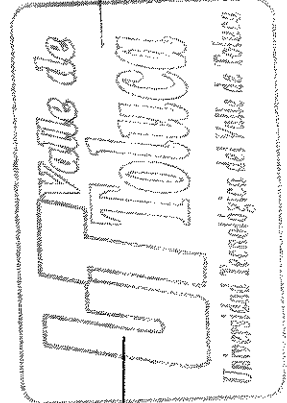 UT Valle de
Toluca
Universidad Tecnológica del Valle de Toluca